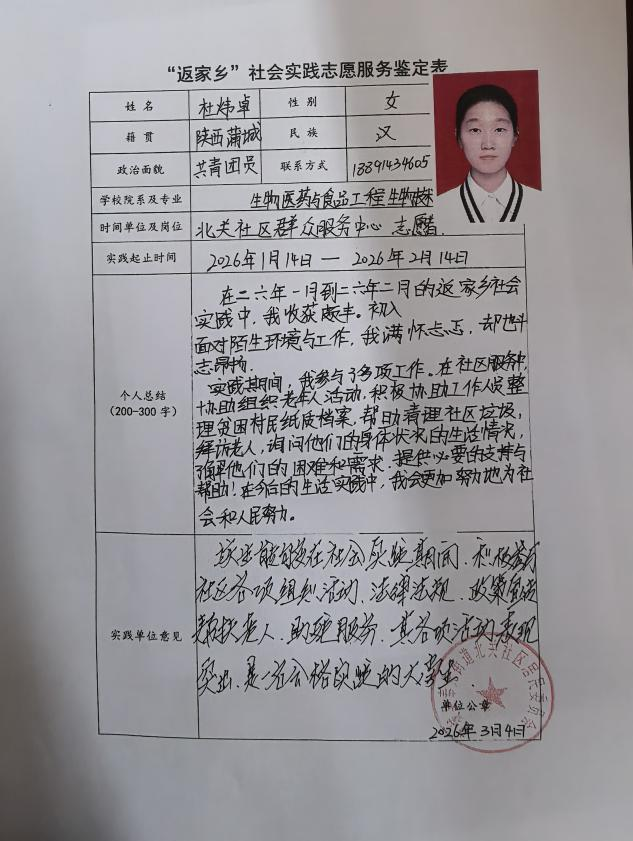 “返家乡”社会实践志愿服务鉴定表
姓 名 杜炜卓 性 别 女
籍 贯 陕西蒲城 民 族 汉
政治面貌 共青团员 联系方式 18891434605
学校院系及专业 生物医药与食品工程 生物技术
时间单位及岗位 北关社区群众服务中心 志愿者.
实践起止时间 2026年1月14日 — 2026年2月14日
个人总结
(200-300字)
在二六年一月到二六年二月的返家乡社会
实践中,我收获颇丰。初入
面对陌生环境与工作,我满怀忐忑,却也斗
志昂扬.
实践期间,我参与了多项工作。在社区服务中,
协助组织老年人活动,积极协助工作人员整
理贫困村民纸质档案,帮助清理社区垃圾,
拜访老人,询问他们的身体状况的生活情况,
了解他们的困难和需求,提供必要的支持与
帮助!在今后的生活实践中,我会更加努力地为社
会和人民努力。
实践单位意见
该生能够在社会实践期间、积极参与
社区各项组织活动、法律法规、政策宣传
老人、服务、其各项活动表现
突出、是一名合格实践的大学生.
街道北关社区居民委员会
单位公章
2026年3月4日